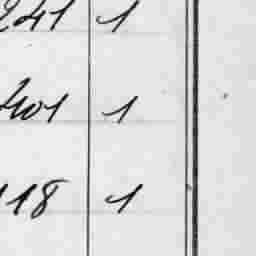 241 1
401 1
118 1